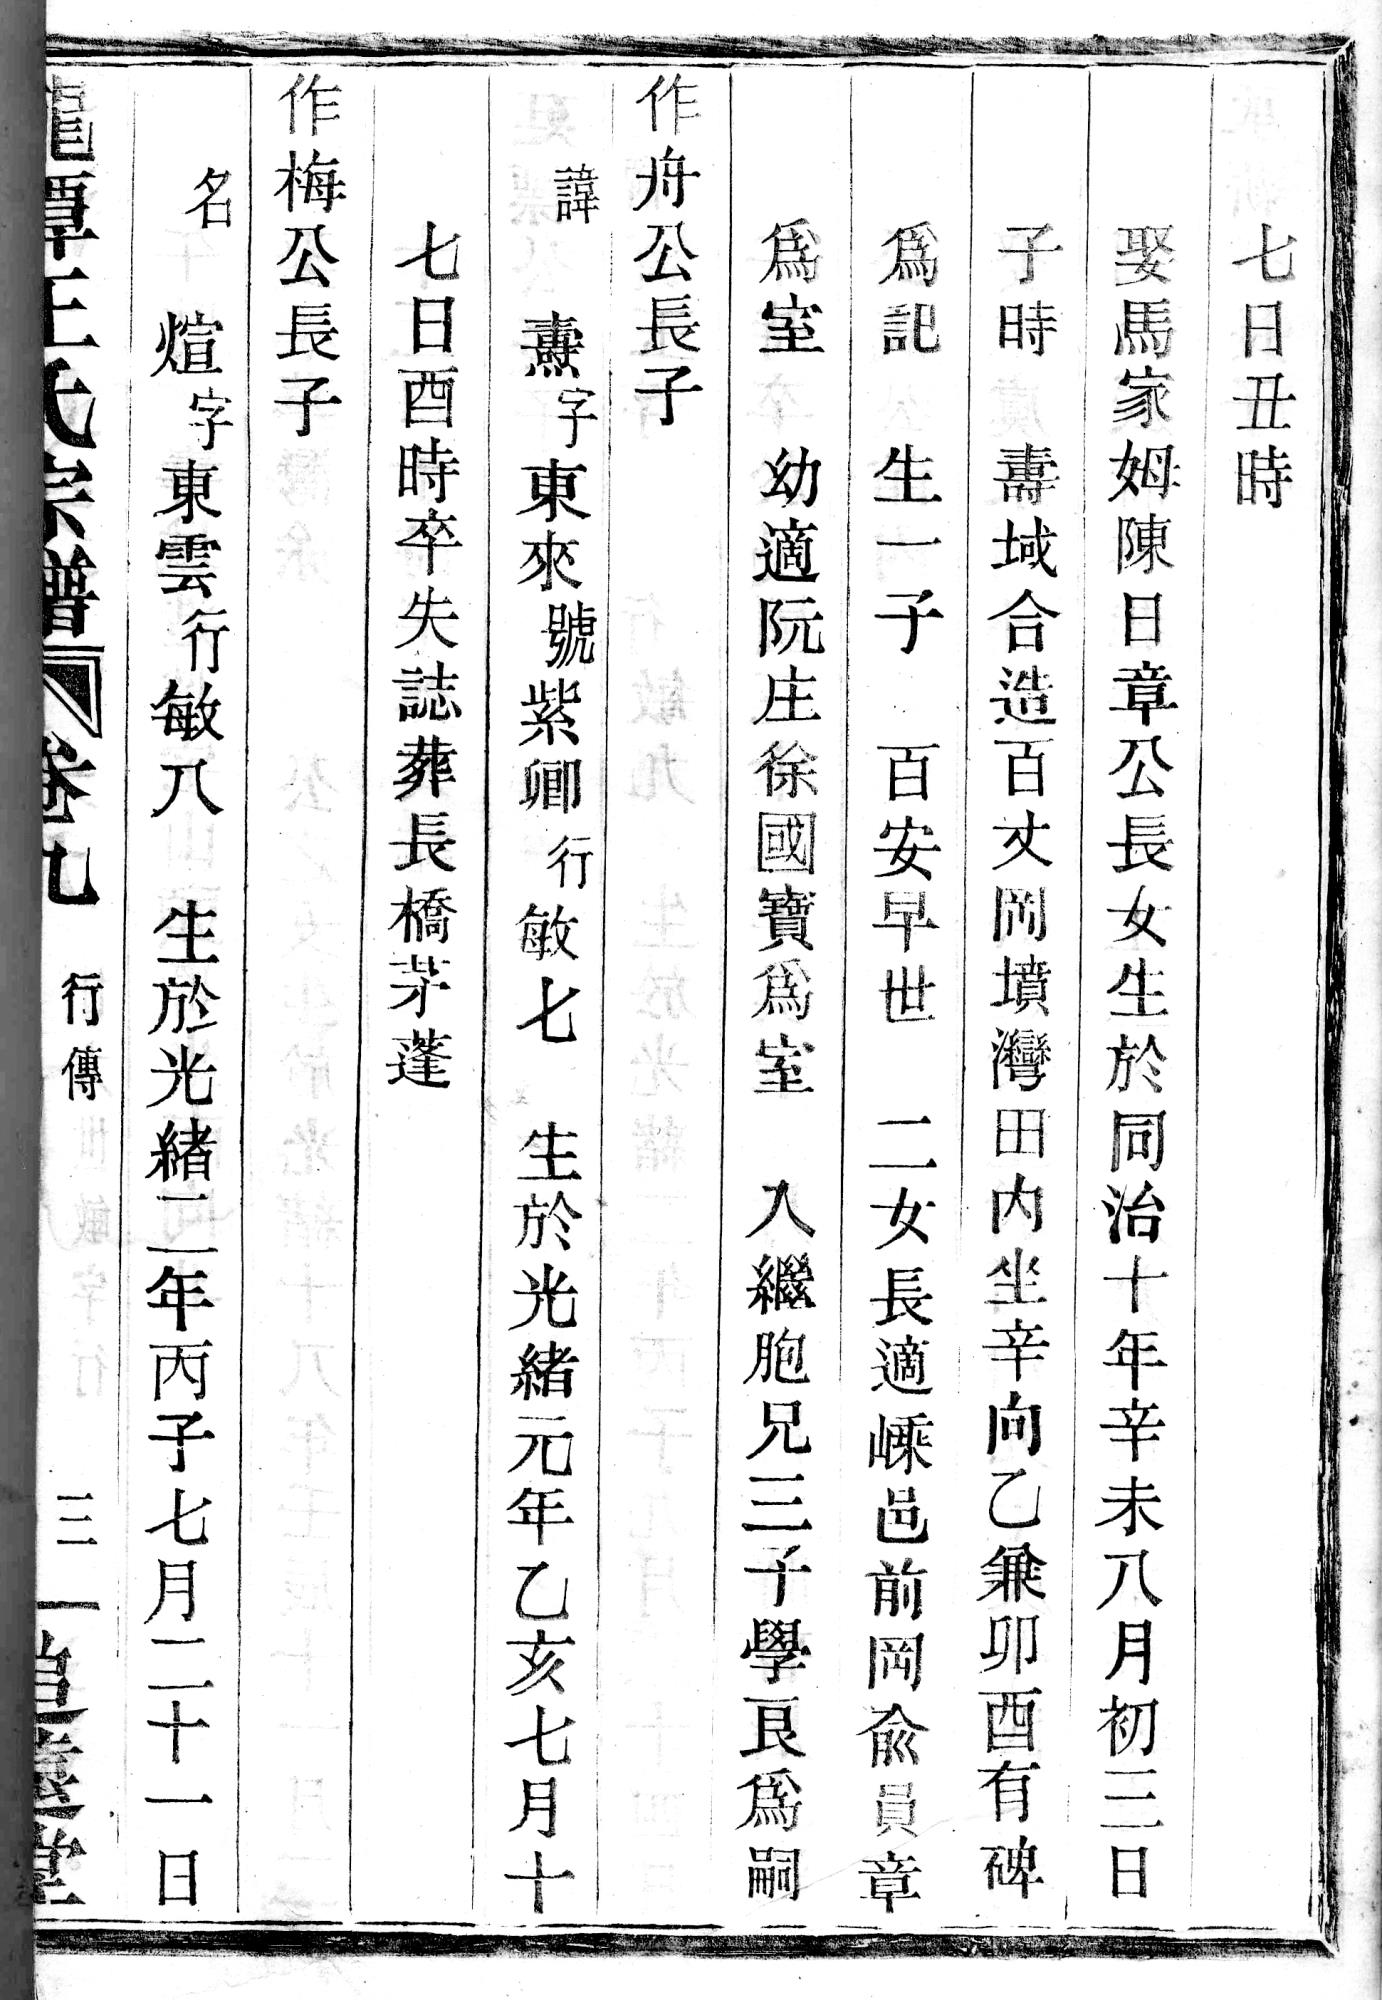 七日丑時
娶馬家姆陳日章公長女生於同治十年辛未八月初三日
子時 壽域合造百丈岡墳灣田內坐辛向乙兼卯酉有碑
爲記 生一子 百安早世 二女長適嵊邑前岡兪員章
爲室 幼適阮庄徐國寶爲室 入繼胞兄三子學良爲嗣
作舟公長子
諱 燾字東來號紫卿行敏七 生於光緒元年乙亥七月十
七日酉時卒失誌葬長橋茅蓬
作梅公長子
名 煊字東雲行敏八 生於光緒二年丙子七月二十一日
龍潭王氏宗譜 卷九 行傳 三 追遠堂